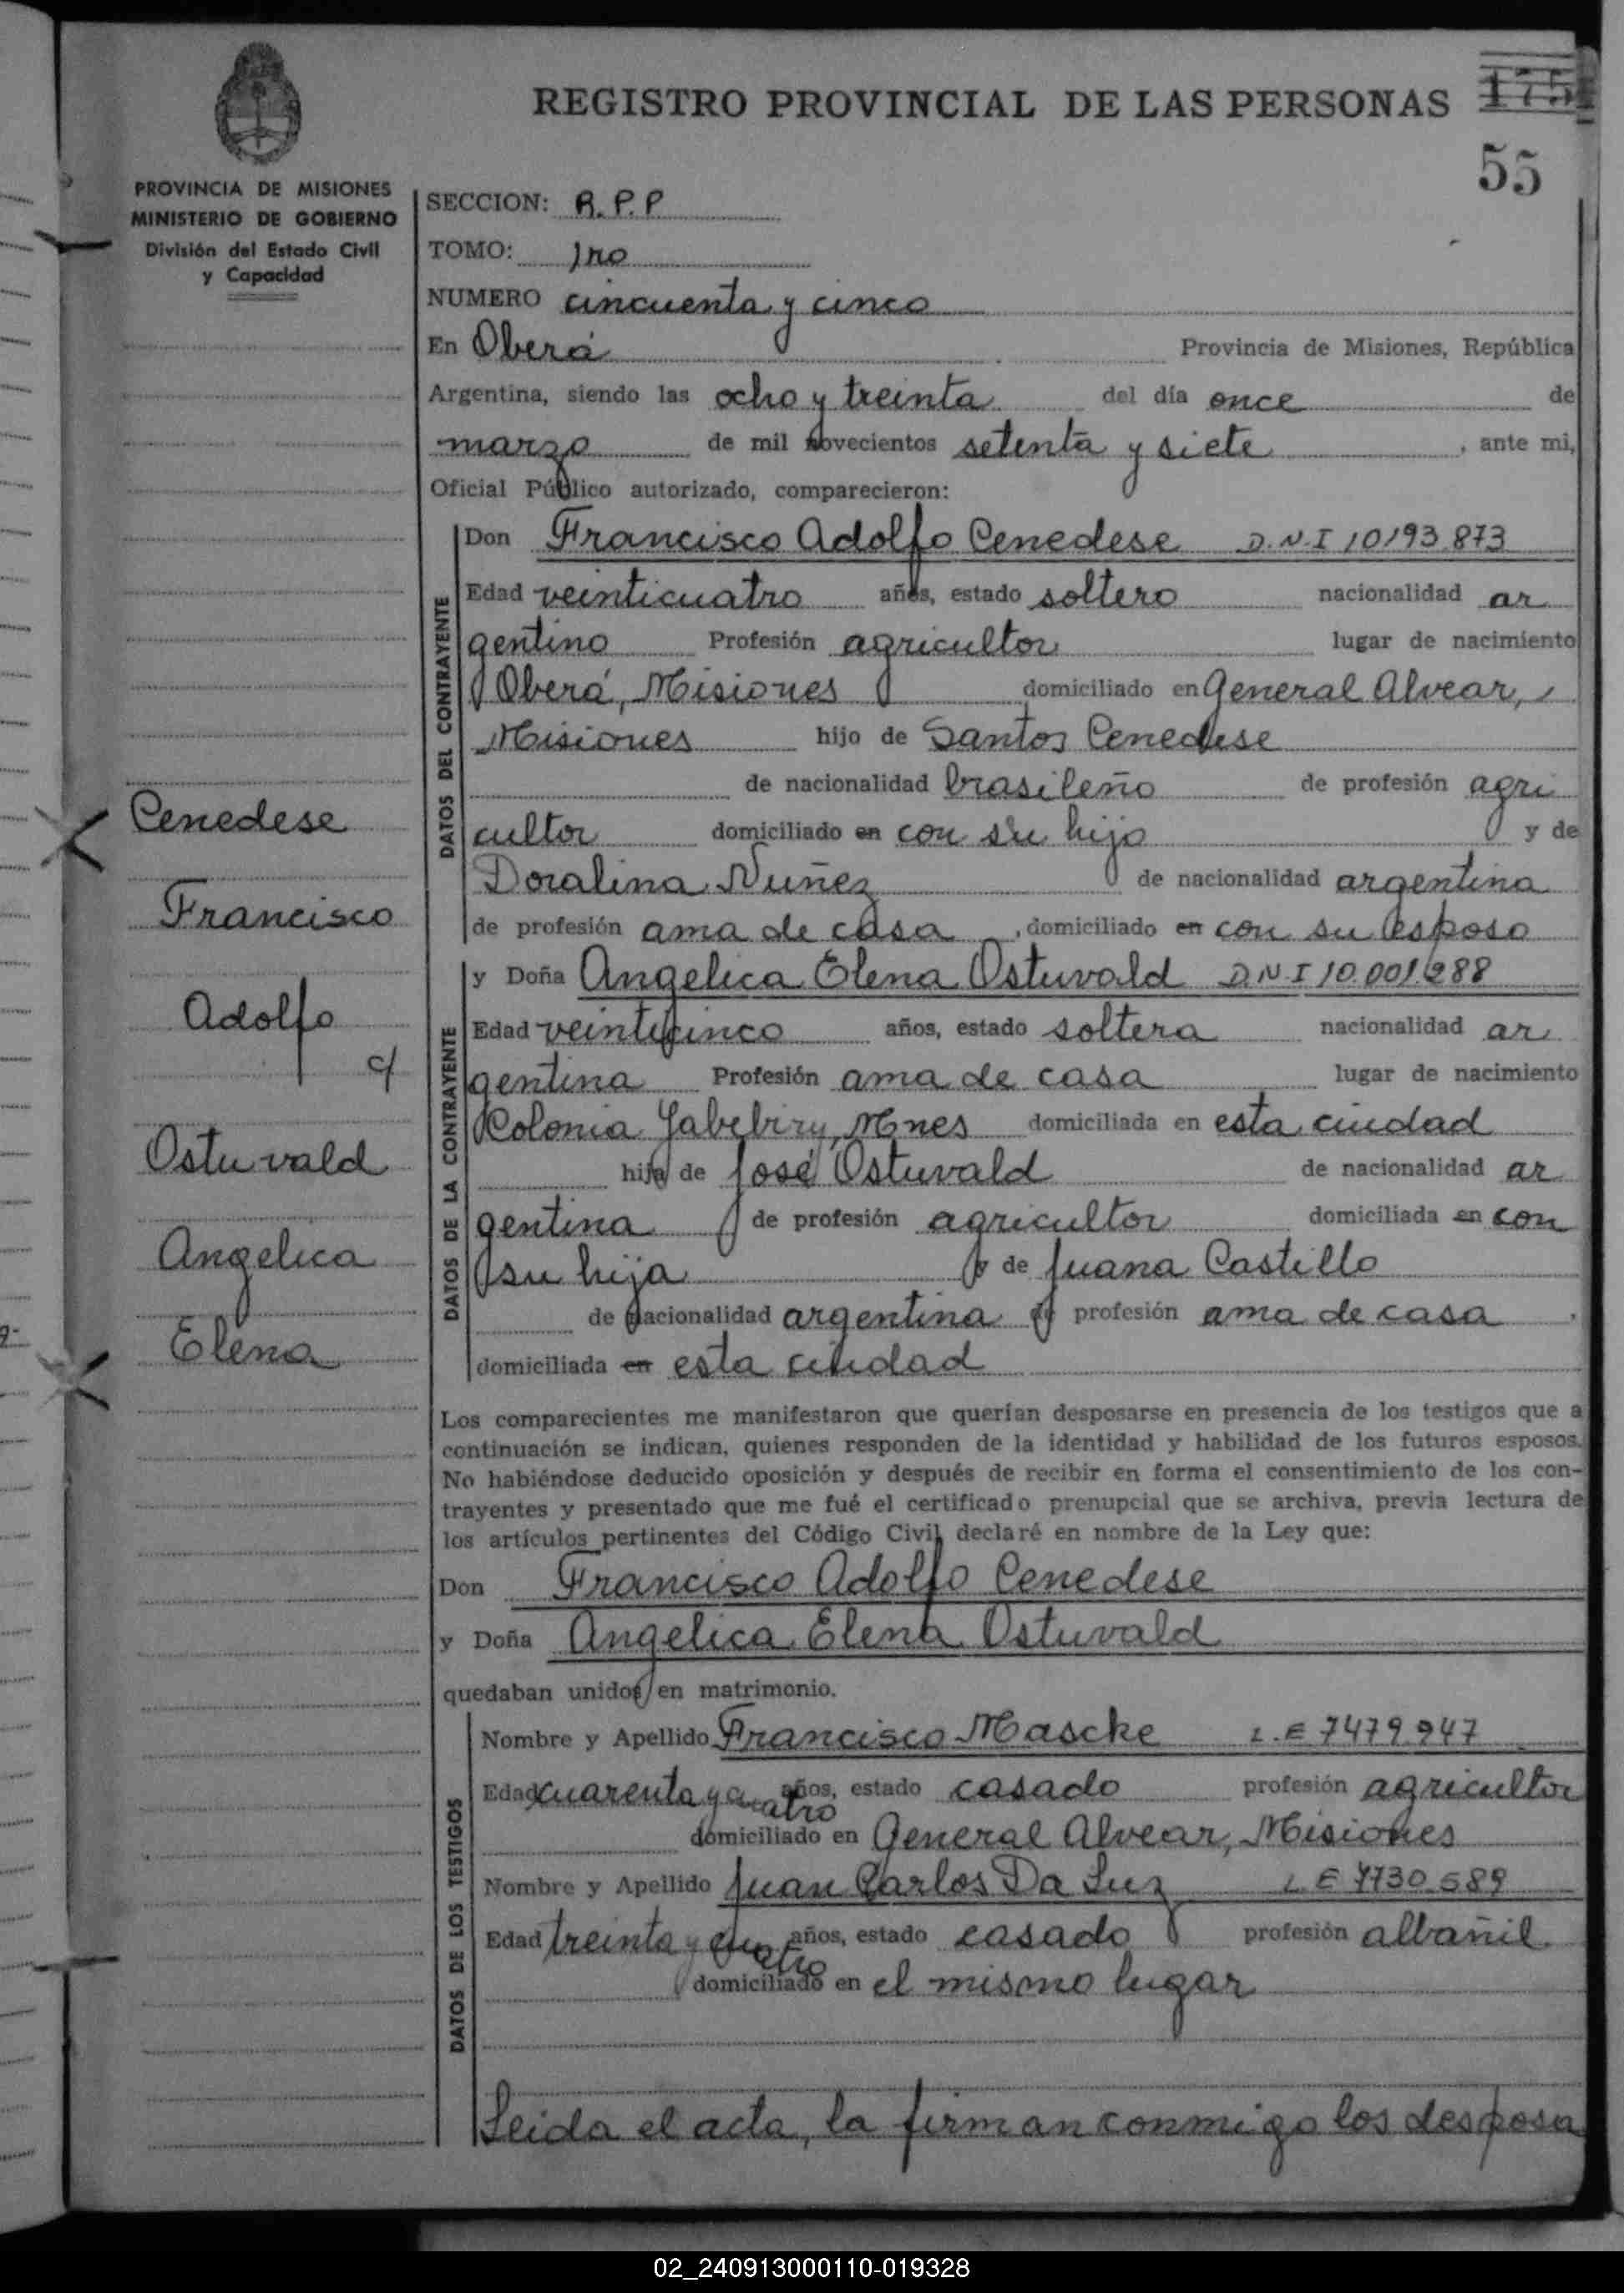 REGISTRO PROVINCIAL DE LAS PERSONAS
175
55
PROVINCIA DE MISIONES
MINISTERIO DE GOBIERNO
División del Estado Civil
y Capacidad
SECCION: R.P.P
TOMO: 1ro
NUMERO cincuenta y cinco
En Oberá Provincia de Misiones, República
Argentina, siendo las ocho y treinta del día once de
marzo de mil novecientos setenta y siete, ante mi,
Oficial Público autorizado, comparecieron:
DATOS DEL CONTRAYENTE
Don Francisco Adolfo Cenedese D.N.I 10193.873
Edad veinticuatro años, estado soltero nacionalidad ar
gentino Profesión agricultor lugar de nacimiento
Oberá, Misiones domiciliado en General Alvear,
Misiones hijo de Santos Cenedese
de nacionalidad brasileño de profesión agri
cultor domiciliado en con su hijo y de
Doralina Nuñez de nacionalidad argentina
de profesión ama de casa, domiciliado en con su esposo
Cenedese
Francisco
Adolfo
c/
Ostuvald
Angelica
Elena
DATOS DE LA CONTRAYENTE
y Doña Angelica Elena Ostuvald D.N.I 10.001.288
Edad veinticinco años, estado soltera nacionalidad ar
gentina Profesión ama de casa lugar de nacimiento
Colonia Yabebiry, Mnes domiciliada en esta ciudad
hija de José Ostuvald de nacionalidad ar
gentina de profesión agricultor domiciliada en con
su hija y de Juana Castillo
de nacionalidad argentina de profesión ama de casa.
domiciliada en esta ciudad
Los comparecientes me manifestaron que querían desposarse en presencia de los testigos que a
continuación se indican, quienes responden de la identidad y habilidad de los futuros esposos.
No habiéndose deducido oposición y después de recibir en forma el consentimiento de los con-
trayentes y presentado que me fué el certificado prenupcial que se archiva, previa lectura de
los artículos pertinentes del Código Civil declaré en nombre de la Ley que:
Don Francisco Adolfo Cenedese
y Doña Angelica Elena Ostuvald
quedaban unidos en matrimonio.
DATOS DE LOS TESTIGOS
Nombre y Apellido Francisco Mascke L.E 7479.947
Edad cuarenta y cuatro años, estado casado profesión agricultor
domiciliado en General Alvear, Misiones
Nombre y Apellido Juan Carlos Da Luz L.E 7730.589
Edad treinta y cuatro años, estado casado profesión albañil
domiciliado en el mismo lugar
Leida el acta, la firman conmigo los desposa
02_240913000110-019328